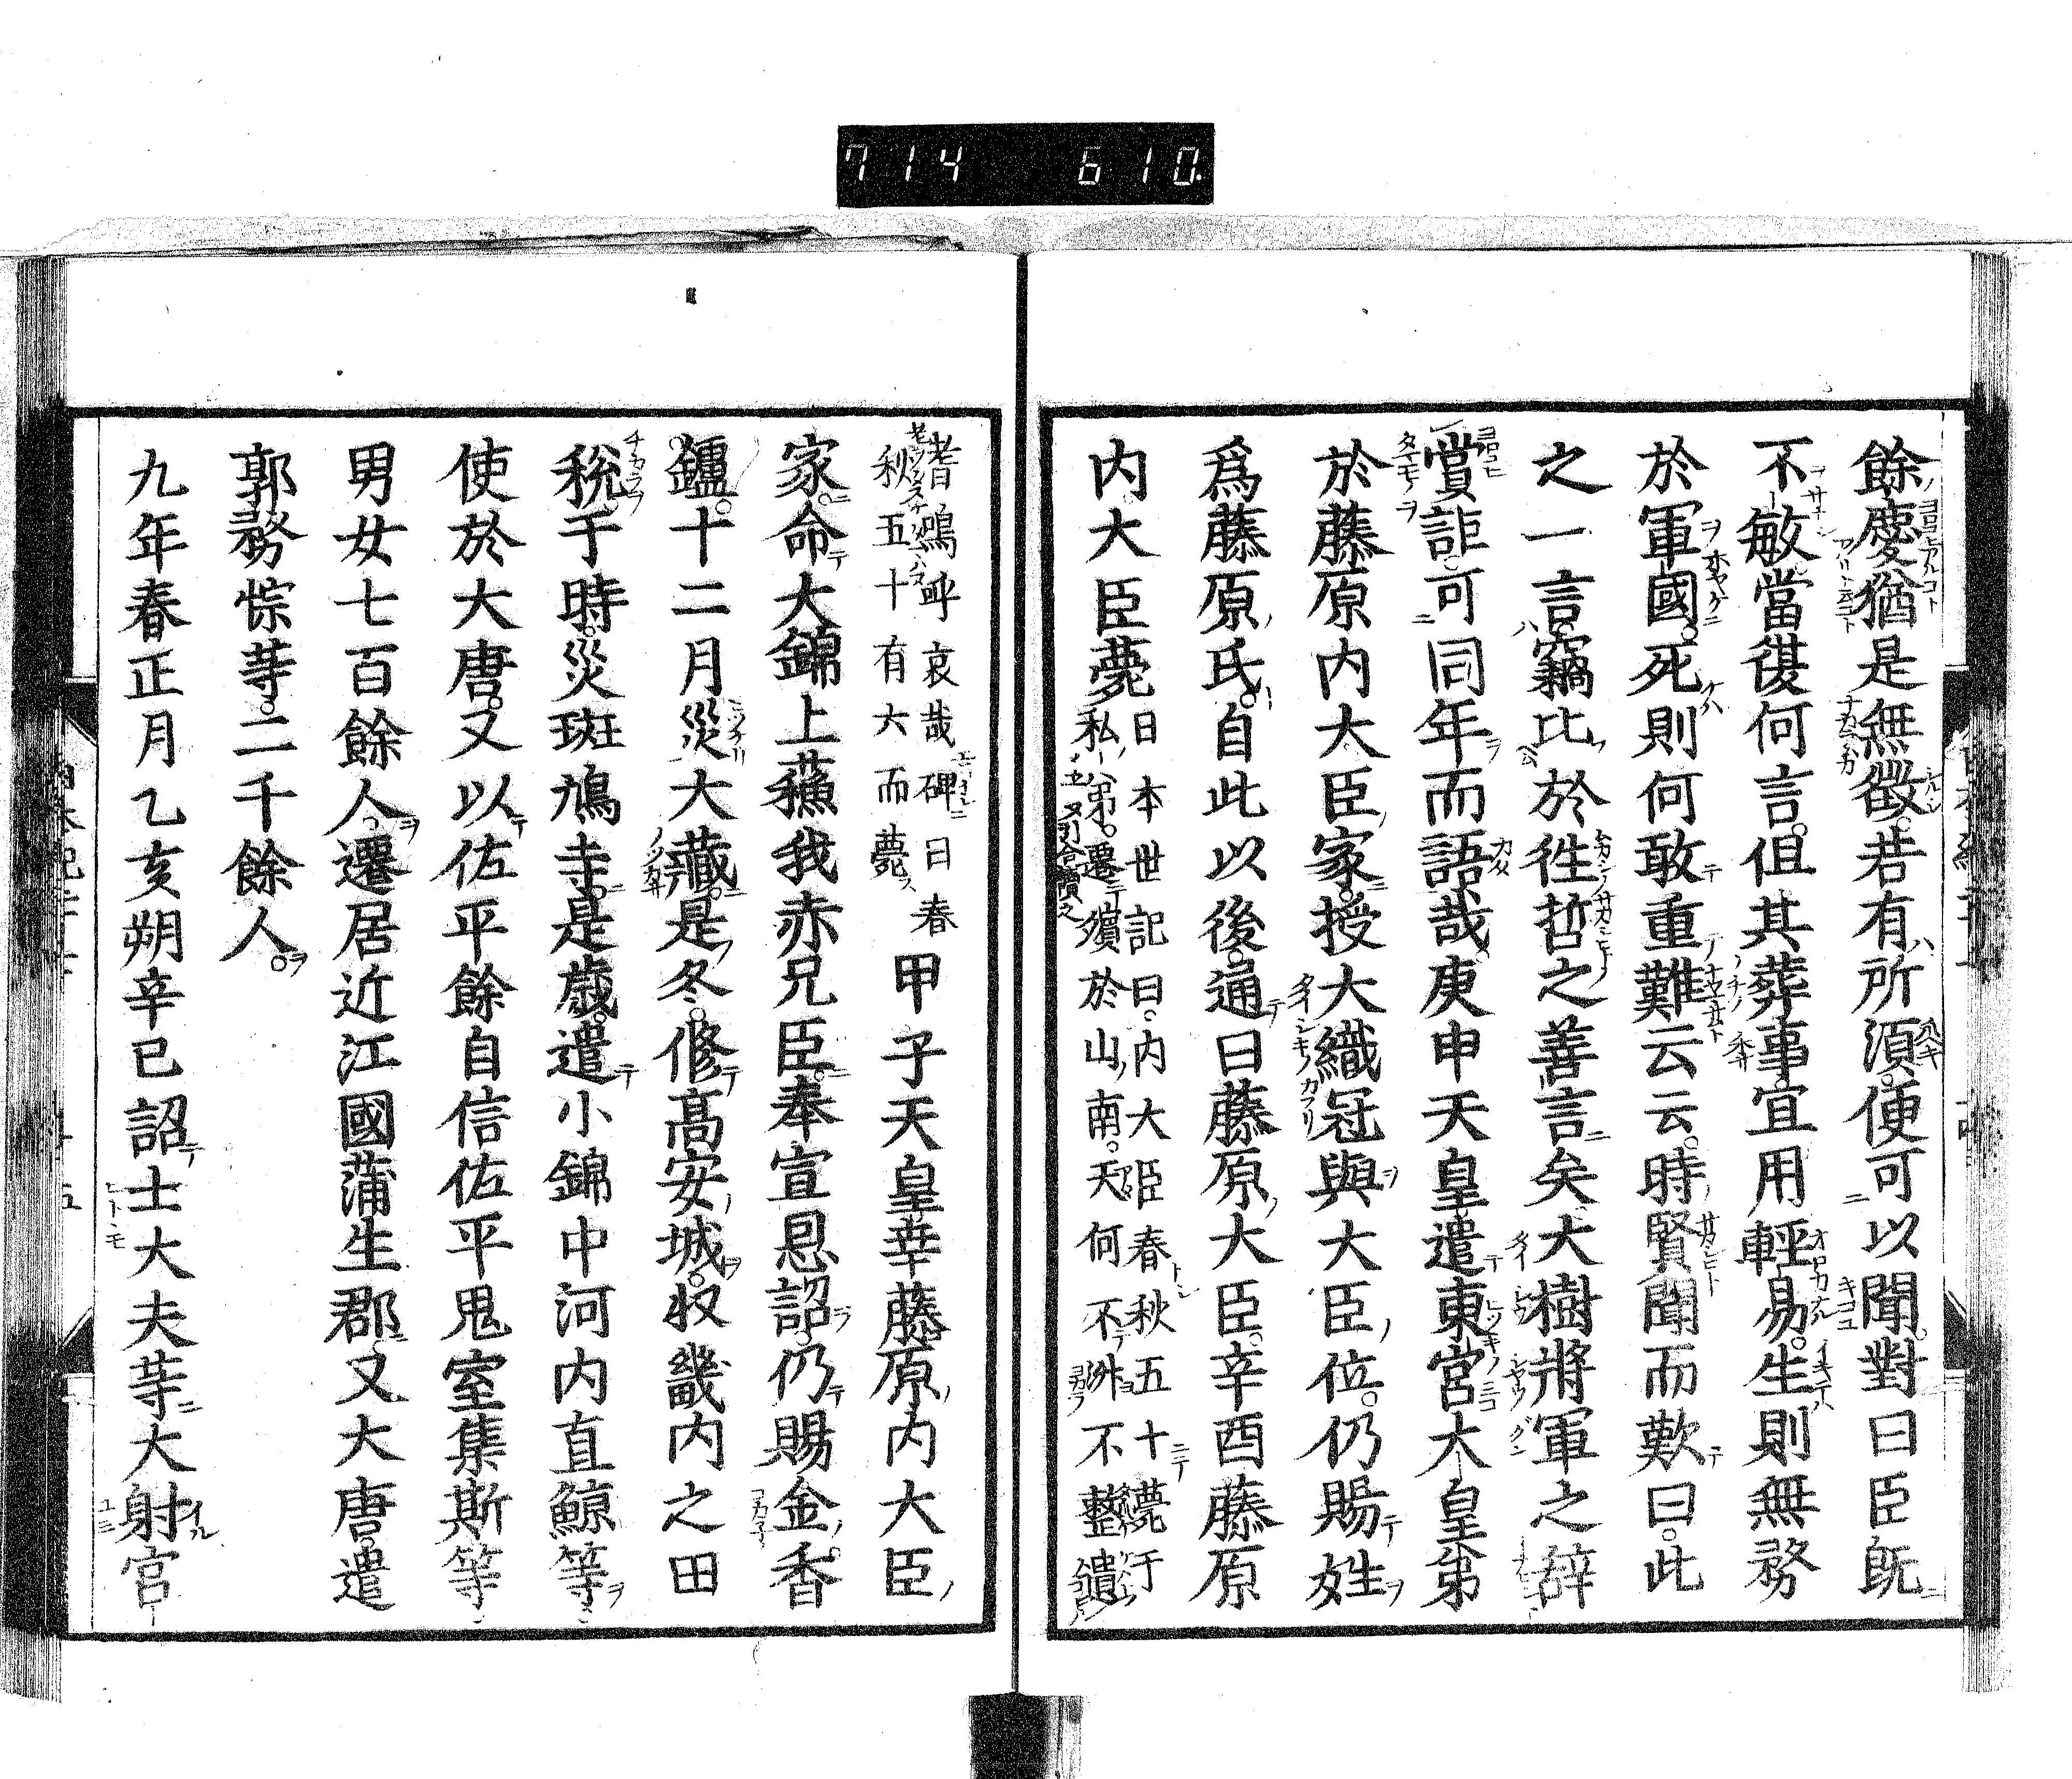 714 610
餘慶猶是無徴若有所須便可以聞對曰臣既
不敏當復何言但其葬事宜用輕易生則無務
於軍國死則何敢重難云云時賢聞而歎曰此
之一言竊比於徃哲之善言矣大樹將軍之辞
賞詎可同年而語哉庚申天皇遣東宮大皇弟
於藤原内大臣家授大織冠與大臣位仍賜姓
爲藤原氏自此以後通曰藤原大臣辛酉藤原
内大臣薨
日本世記曰内大臣春秋五十薨于
私第遷殯於山南天何不淑不整遺
耆鳴呼哀哉碑曰春
秋五十有六而薨
甲子天皇幸藤原内大臣
家命大錦上蘓我赤兄臣奉宣恩詔仍賜金香
鑪十二月災大藏是冬修髙安城収畿内之田
税于時災斑鳩寺是歳遣小錦中河内直鯨等
使於大唐又以佐平餘自信佐平鬼室集斯等
男女七百餘人遷居近江國蒲生郡又大唐遣
郭務悰等二千餘人
九年春正月乙亥朔辛巳詔士大夫等大射宮